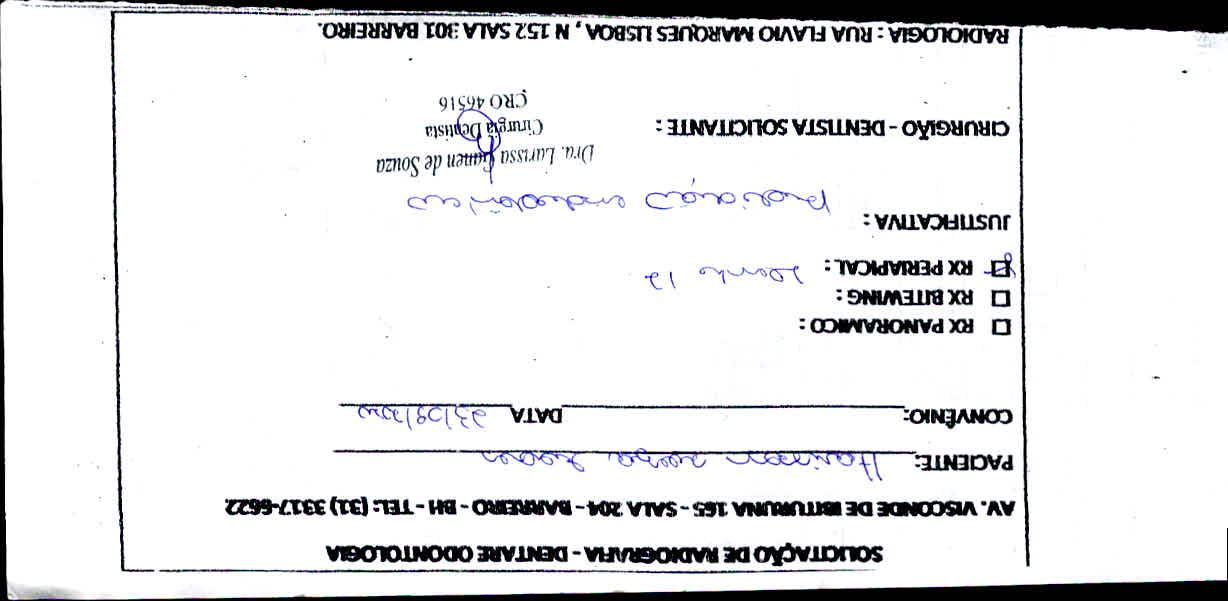 SOLICITAÇÃO DE RADIOGRAFIA - DENTARE ODONTOLOGIA
AV. VISCONDE DE IBITURUNA 165 - SALA 204 - BARREIRO - BH - TEL: (31) 3317-6622
PACIENTE: Harisson
CONVÊNIO: DATA 23/09/2020
RX PANORAMICO :
RX BITEWING :
RX PERIAPICAL : dente 12
JUSTIFICATIVA :
Avaliação endodôntica
Dra. Larissa de Souza
CIRURGIÃO - DENTISTA SOLICITANTE : Cirurgiã Dentista
CRO 46516
RADIOLOGIA : RUA FLAVIO MARQUES LISBOA , N 152 SALA 301 BARREIRO.